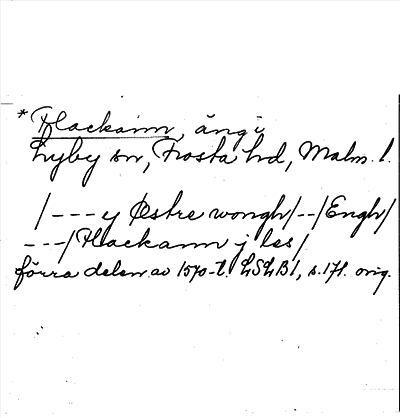 * Flackann, äng i
Lyby sn, Frosta hd, Malm. l.
/---y Østre wongh/--/Engh/
---/Flackann j les/
förra delen av 1570-t. LSLB1, s. 171. orig.